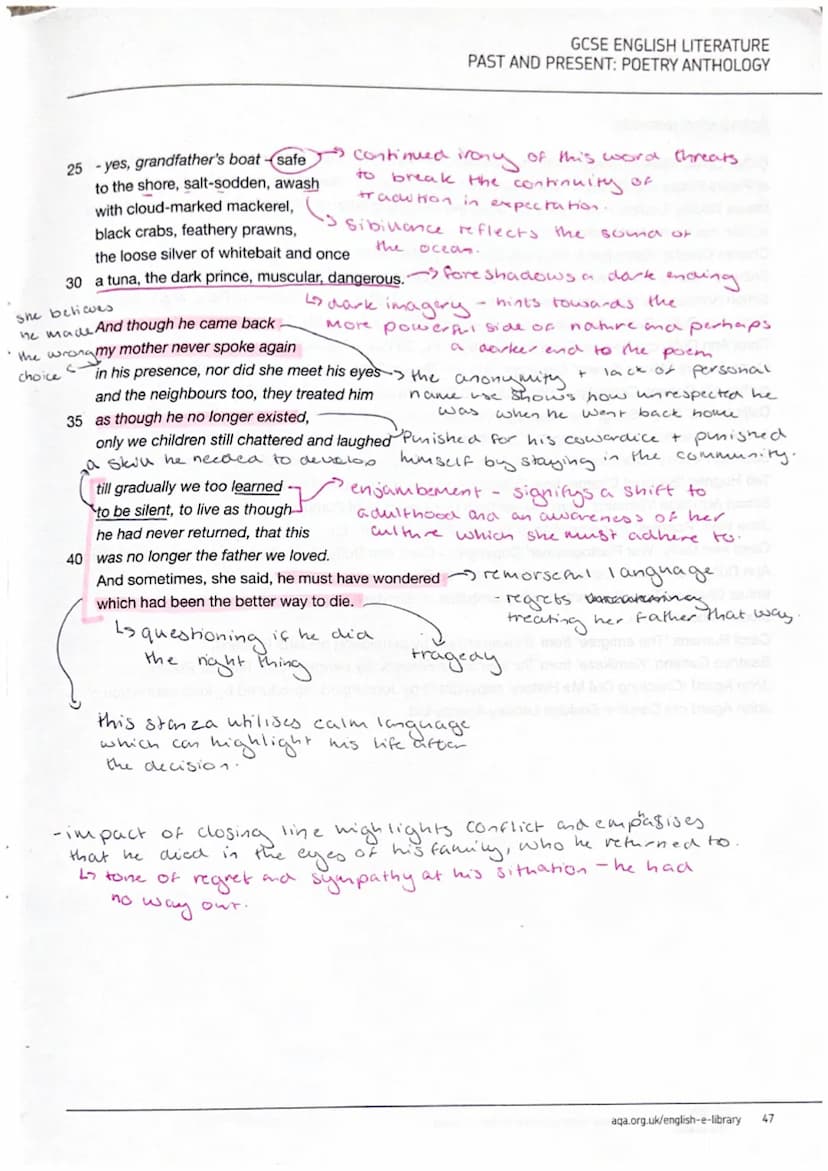 GCSE ENGLISH LITERATURE
PAST AND PRESENT: POETRY ANTHOLOGY
25 - yes, grandfather's boat – safe
to the shore, salt-sodden, awash
with cloud-marked mackerel,
black crabs, feathery prawns,
the loose silver of whitebait and once
30 a tuna, the dark prince, muscular, dangerous.
continued irony of this word threats
to break the continuity of
tradition in expectation.
sibilance reflects the sound of
the ocean.
foreshadows a dark ending
dark imagery - hints towards the
more powerful side of nature and perhaps
a darker end to the poem
she believes
he made
the wrong
choice
And though he came back
my mother never spoke again
in his presence, nor did she meet his eyes
and the neighbours too, they treated him
35 as though he no longer existed,
only we children still chattered and laughed
the anonymity + lack of personal
name use shows how unrespected he
was when he went back home
Punished for his cowardice + punished
himself by staying in the community.
a skill he needed to develop
till gradually we too learned
to be silent, to live as though
he had never returned, that this
40 was no longer the father we loved.
And sometimes, she said, he must have wondered
which had been the better way to die.
enjambement - signifys a shift to
adulthood and an awareness of her
culture which she must adhere to.
remorseful language
- regrets
treating her father that way.
questioning if he did
the right thing
tragedy
this stanza utilises calm language
which can highlight his life after
the decision.
- impact of closing line highlights conflict and empasises
h
that he died in the eyes of his family, who he returned to.
tone of regret and sympathy at his situation - he had
no way out.
aqa.org.uk/english-e-library 47